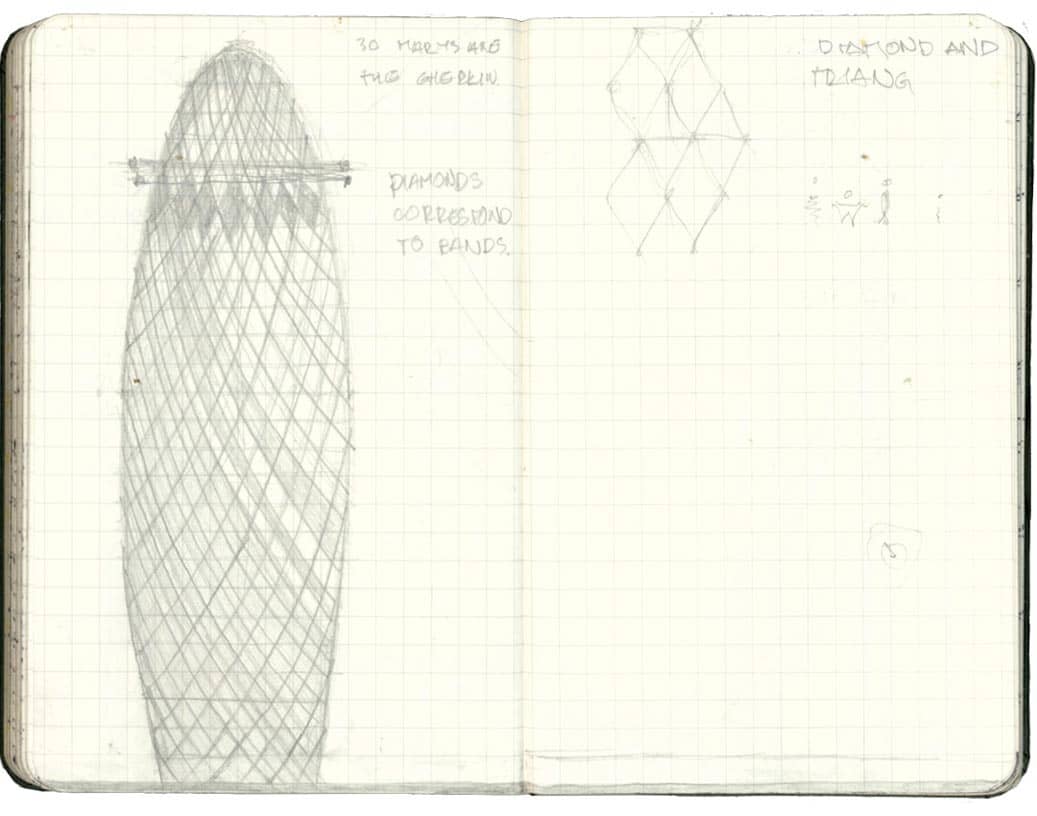 30 MARYS AXE
THE GHERKIN.
DIAMONDS
CORRESPOND
TO BANDS.
DIAMOND AND
TRIANG